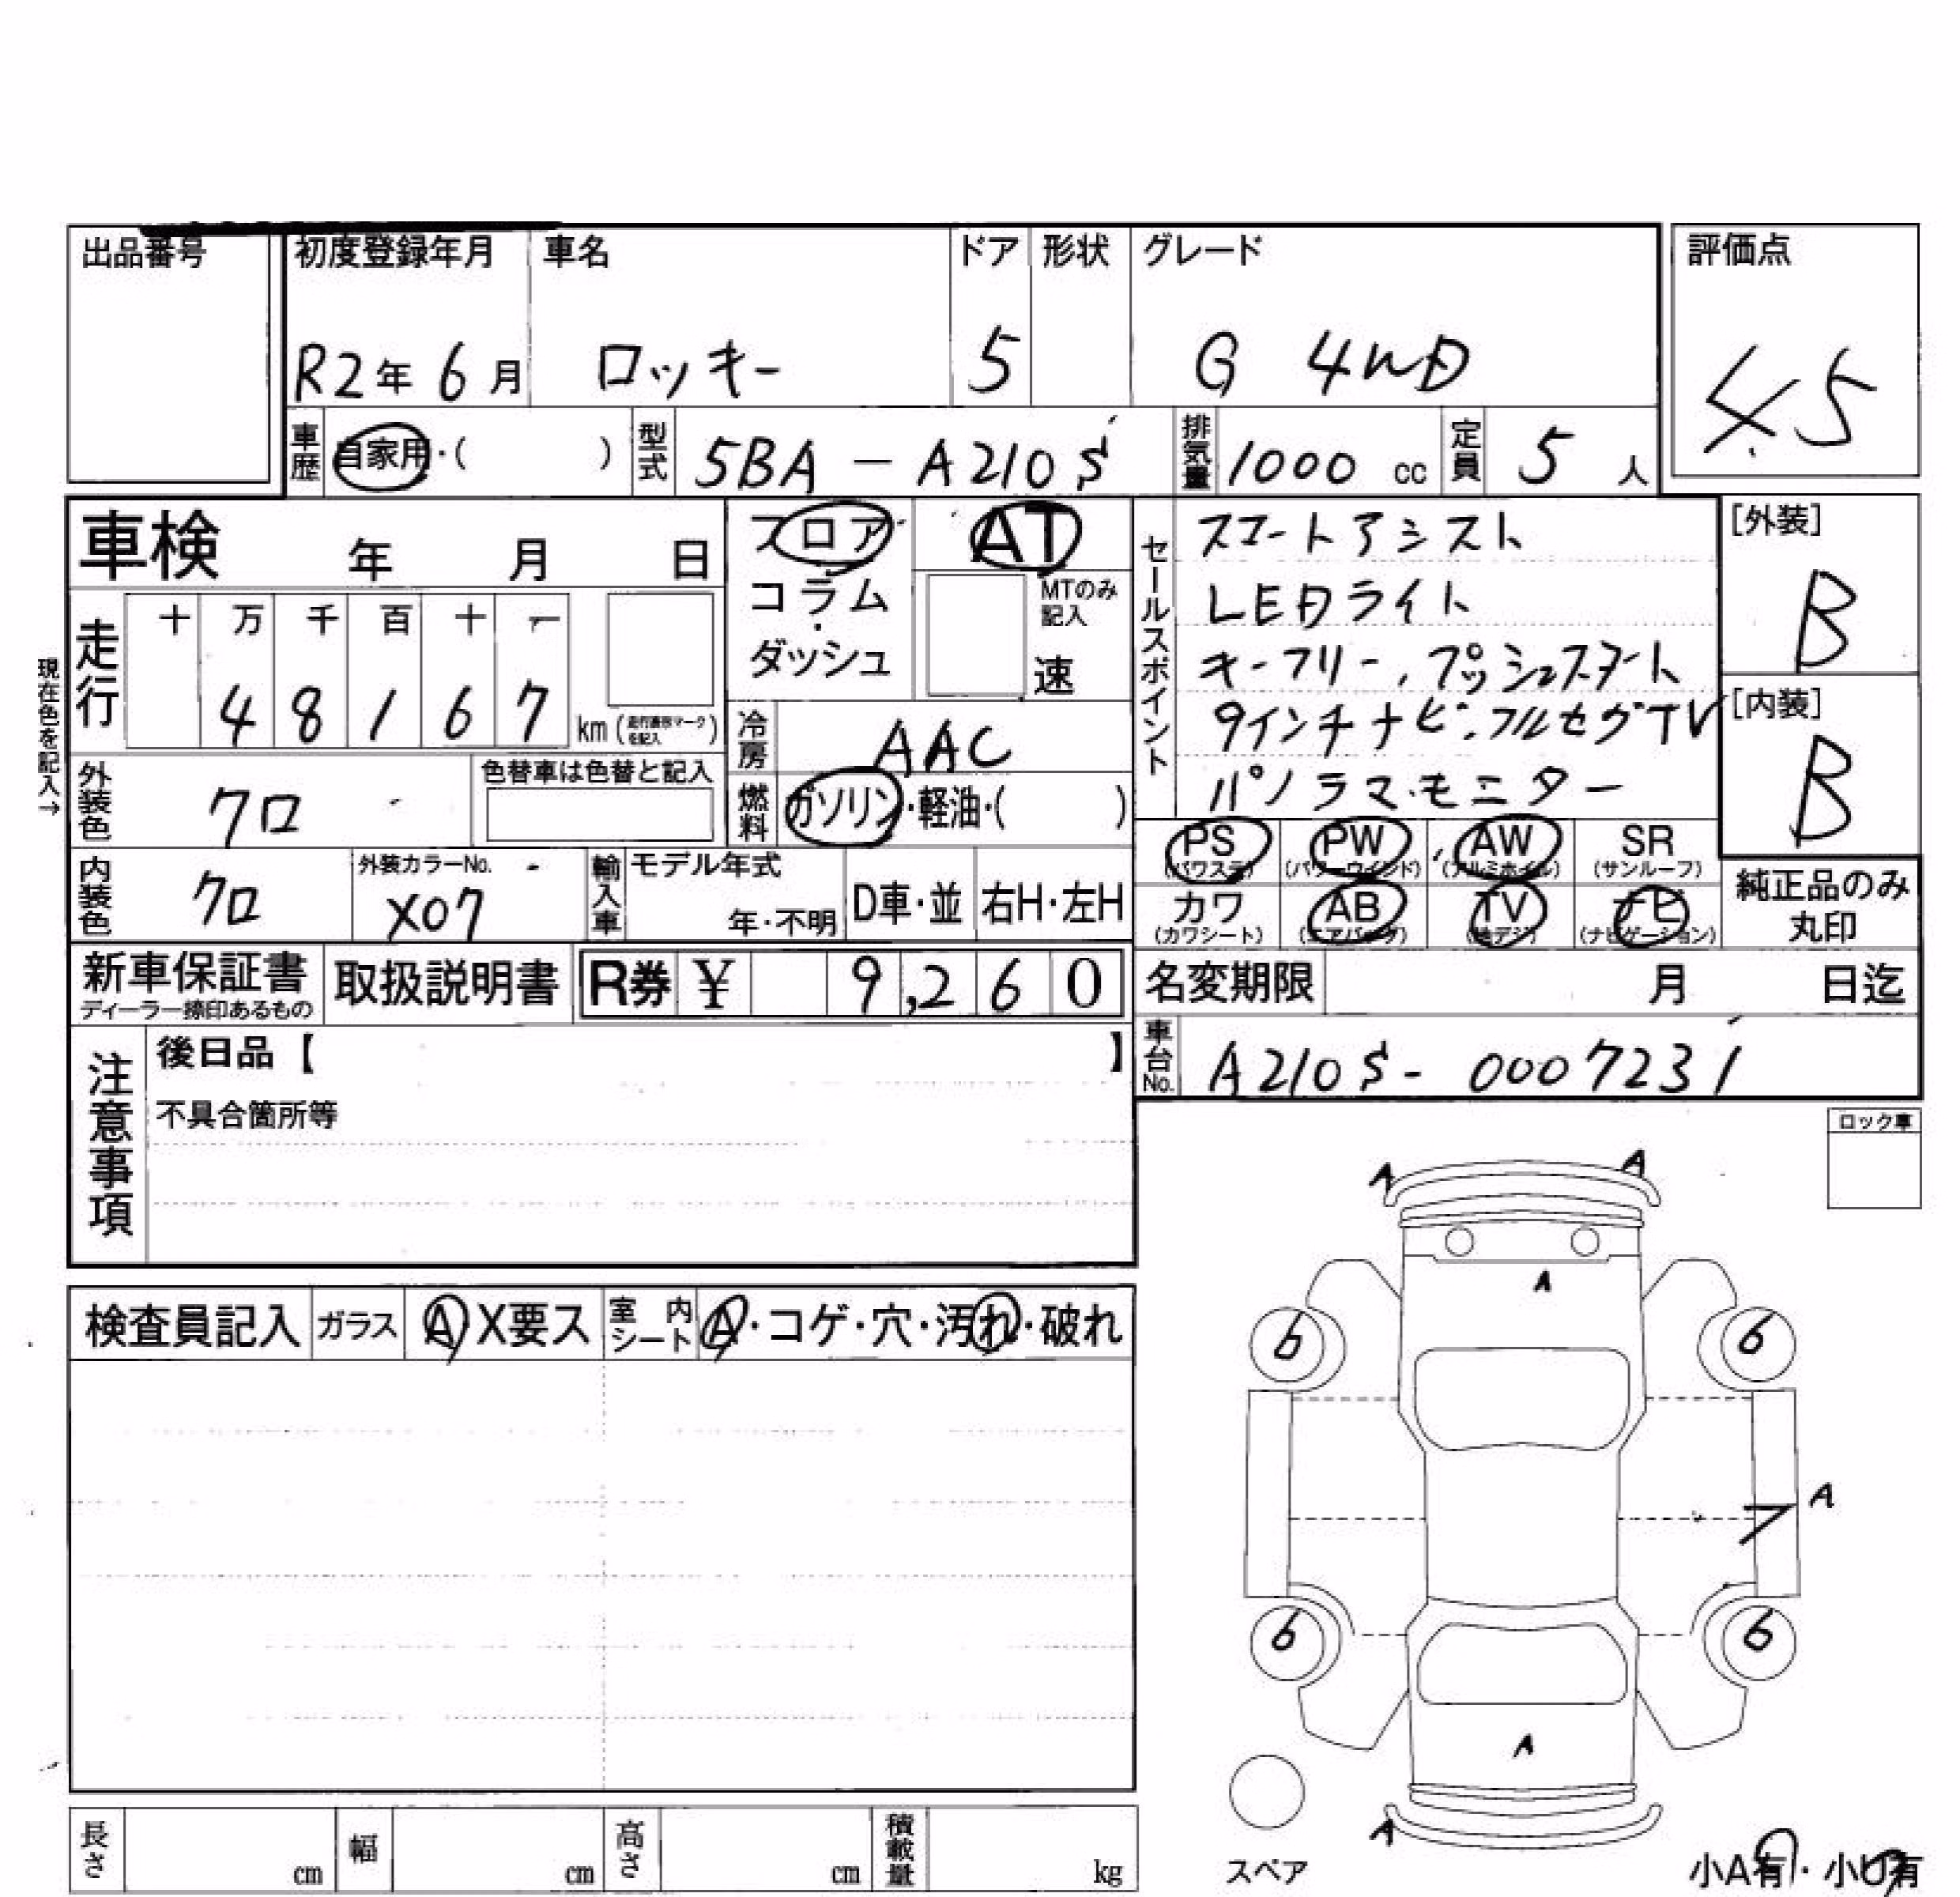 出品番号
初度登録年月 車名 ドア 形状 グレード 評価点
R2年 6月 ロッキー 5 G 4WD 4.5
車歴 自家用・( ) 型式 5BA-A210S 排気量 1000 cc 定員 5 人
車検 年 月 日
フロア AT
コラム MTのみ記入
ダッシュ 速
セールスポイント
スマートアシスト
LEDライト
キーフリー、プッシュスタート
9インチナビ・フルセグTV
パノラマモニター
[外装]
B
[内装]
B
現在色を記入→
走行 十 万 千 百 十 一
4 8 1 6 7 km
冷房 AAC
外装色 クロ 色替車は色替と記入
燃料 ガソリン・軽油・( )
PS PW AW SR
(パワステ) (パワーウインド) (アルミホイル) (サンルーフ)
カワ AB TV ナビ
(カワシート) (エアバッグ) (地デジ) (ナビゲーション)
純正品のみ
丸印
内装色 クロ 外装カラーNo. X07 輸入車 モデル年式 年・不明 D車・並 右H・左H
新車保証書 取扱説明書 R券 ¥ 9,260 名変期限 月 日迄
ディーラー捺印あるもの
車台No. A210S-0007231
注意事項
後日品【 】
不具合箇所等
ロック車
A A
A
検査員記入 ガラス A X要ス 室内シート A・コゲ・穴・汚れ・破れ
6 6
A
6 6
A
A
スペア
小A有・小U有
長さ cm 幅 cm 高さ cm 積載量 kg